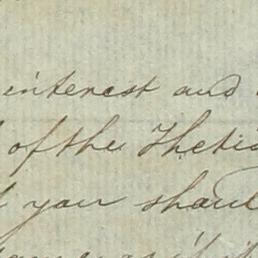 interest and
of the Thetis
your shoul